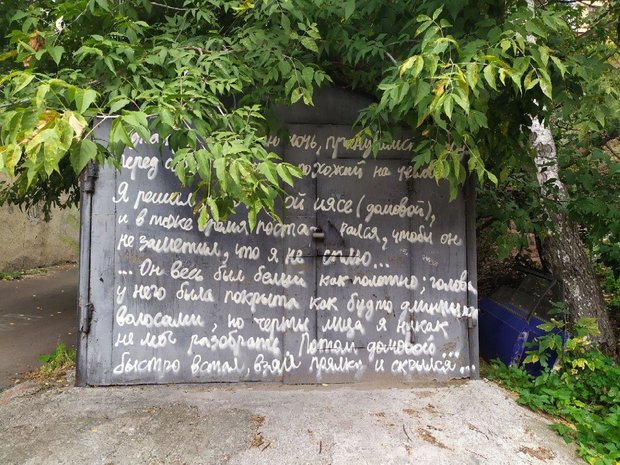 ночь, проснулся
перед похожий на челов
Я решил ой илсе (домовой),
и в тоже время поста рался, чтобы он
не заметил, что я не сплю...
... Он весь был белый как полотно; голова
у него была покрыта как будто длинными
волосами, но черты лица я никак
не мог разобрать. Потом домовой...
быстро встал, взял прялки и скрылся...